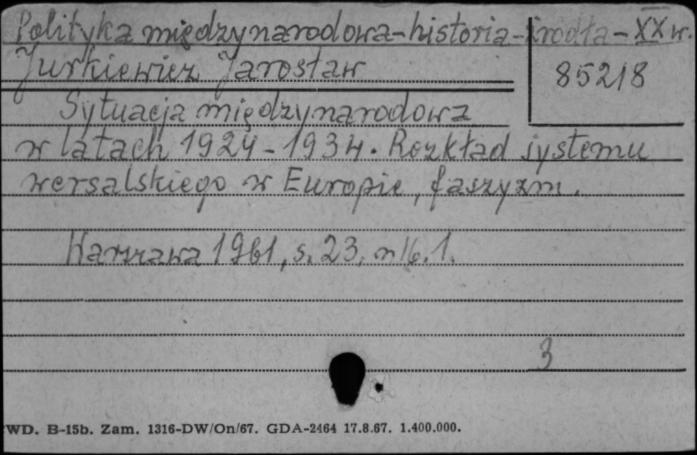 Polityka międzynarodowa-historia-źródła-XX w.
Jurkiewicz Jarosław
85218
Sytuacja międzynarodowa
w latach 1924-1934. Rozkład systemu
wersalskiego w Europie, faszyzm.
Warszawa 1961, s. 23, nlb. 1.
3
WD. B-15b. Zam. 1316-DW/On/67. GDA-2464 17.8.67. 1.400.000.